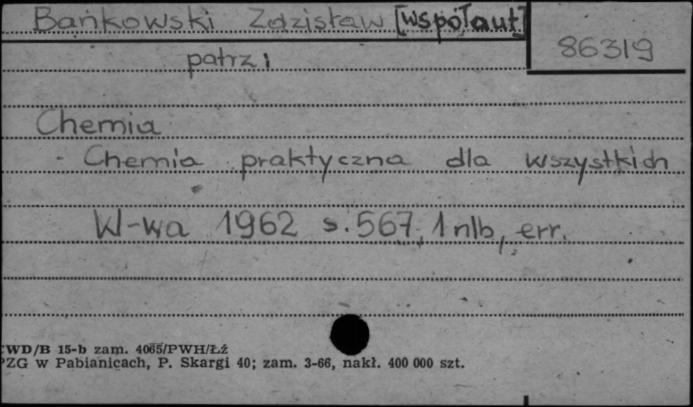 Bańkowski Zdzisław [współaut]
86319
patrz:
Chemia
- Chemia praktyczna dla wszystkich
W-wa 1962 s. 567, 1 nlb, err.
WD/B 15-b zam. 4065/PWH/Łź
PZG w Pabianicach, P. Skargi 40; zam. 3-66, nakł. 400 000 szt.